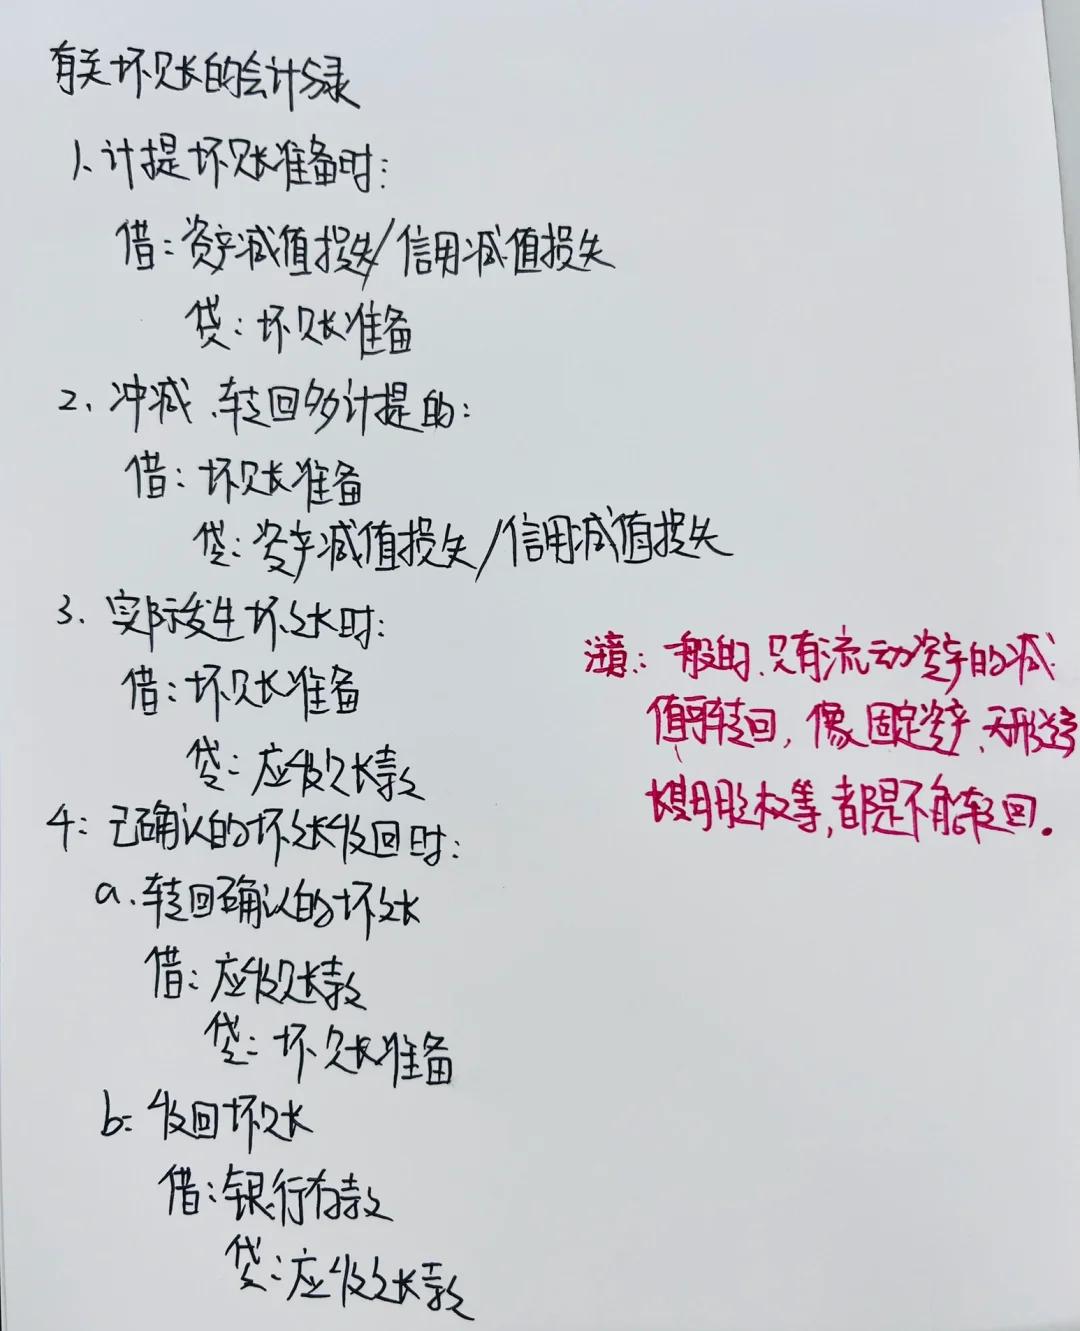 有关坏账的会计分录
1、计提坏账准备时:
借:资产减值损失/信用减值损失
贷:坏账准备
2、冲减、转回多计提的:
借:坏账准备
贷:资产减值损失/信用减值损失
3、实际发生坏账时:
借:坏账准备
贷:应收账款
注意:一般的,只有流动资产的减
值可转回,像固定资产、无形资产
长期股权等,都是不能转回.
4:已确认的坏账收回时:
a、转回确认的坏账
借:应收账款
贷:坏账准备
b:收回坏账
借:银行存款
贷:应收账款